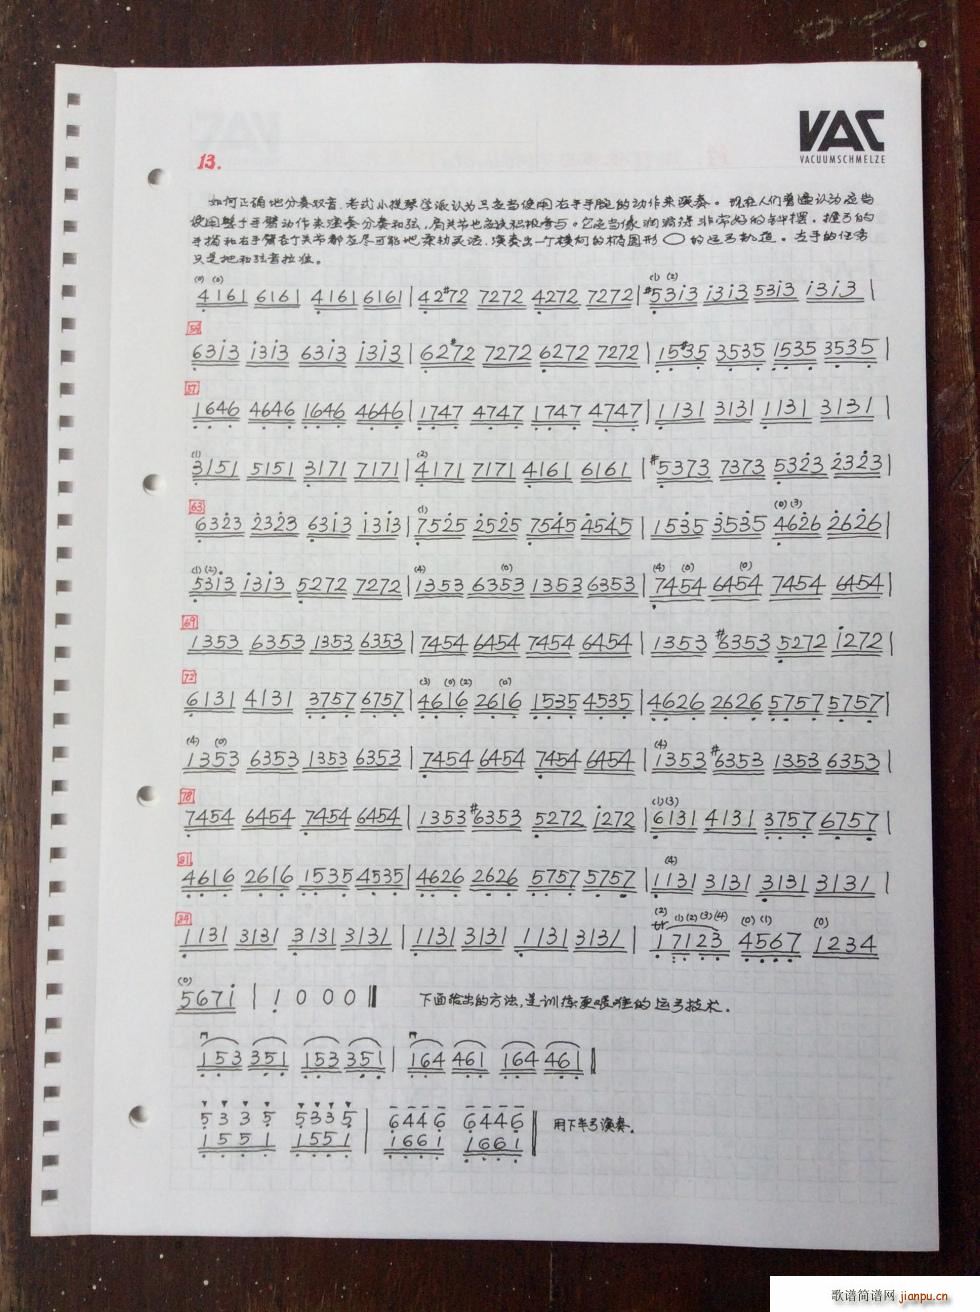 VAC
VACUUMSCHMELZE
13.
如何正确地分奏双音，老式小提琴学派认为只应当使用右手手腕的动作来演奏。现在人们普遍认为应当
使用整个手臂动作来演奏分奏和弦，肩关节也应该积极参与。它应当像润滑得非常好的钟摆，握弓的
手指和右手臂各个关节都应尽可能地柔韧灵活，演奏出一个横向的椭圆形 的运弓轨道。左手的任务
只是把和弦音拉准。
(0) (0) (1) (2)
4161 6161 4161 6161 | 42#72 7272 4272 7272 | #53i3 i3i3 53i3 i3i3 |
54
63i3 i3i3 63i3 i3i3 | 62#72 7272 6272 7272 | 15#35 3535 1535 3535 |
57
1646 4646 1646 4646 | 1747 4747 1747 4747 | 1131 3131 1131 3131 |
(1) (2)
3151 5151 3171 7171 | 4171 7171 4161 6161 | #5373 7373 5323 2323 |
63 (1) (0) (3)
6323 2323 63i3 i3i3 | 7525 2525 7545 4545 | 1535 3535 4626 2626 |
(1) (2) (4) (0) (4) (0) (0)
53i3 i3i3 5272 7272 | 1353 6353 1353 6353 | 7454 6454 7454 6454 |
69
1353 6353 1353 6353 | 7454 6454 7454 6454 | 1353 #6353 5272 i272 |
72 (3) (0) (2) (0)
6131 4131 3757 6757 | 4616 2616 1535 4535 | 4626 2626 5757 5757 |
(4) (0) (4)
1353 6353 1353 6353 | 7454 6454 7454 6454 | 1353 #6353 1353 6353 |
78 (1) (3)
7454 6454 7454 6454 | 1353 #6353 5272 i272 | 6131 4131 3757 6757 |
81 (4)
4616 2616 1535 4535 | 4626 2626 5757 5757 | 1131 3131 3131 3131 |
84 (2) tr (1) (2) (3) (4) (0) (1) (0)
1131 3131 3131 3131 | 1131 3131 1131 3131 | 1 7123 4567 1234
(0)
567i | 1 0 0 0 ‖ 下面给出的方法，是训练更艰难的运弓技术。
153 351 153 351 | 164 461 164 461 ‖
5335 5335 | 6446 6446 ‖ 用下半弓演奏。
1551 1551 | 1661 1661
歌谱简谱网 jianpu.cn